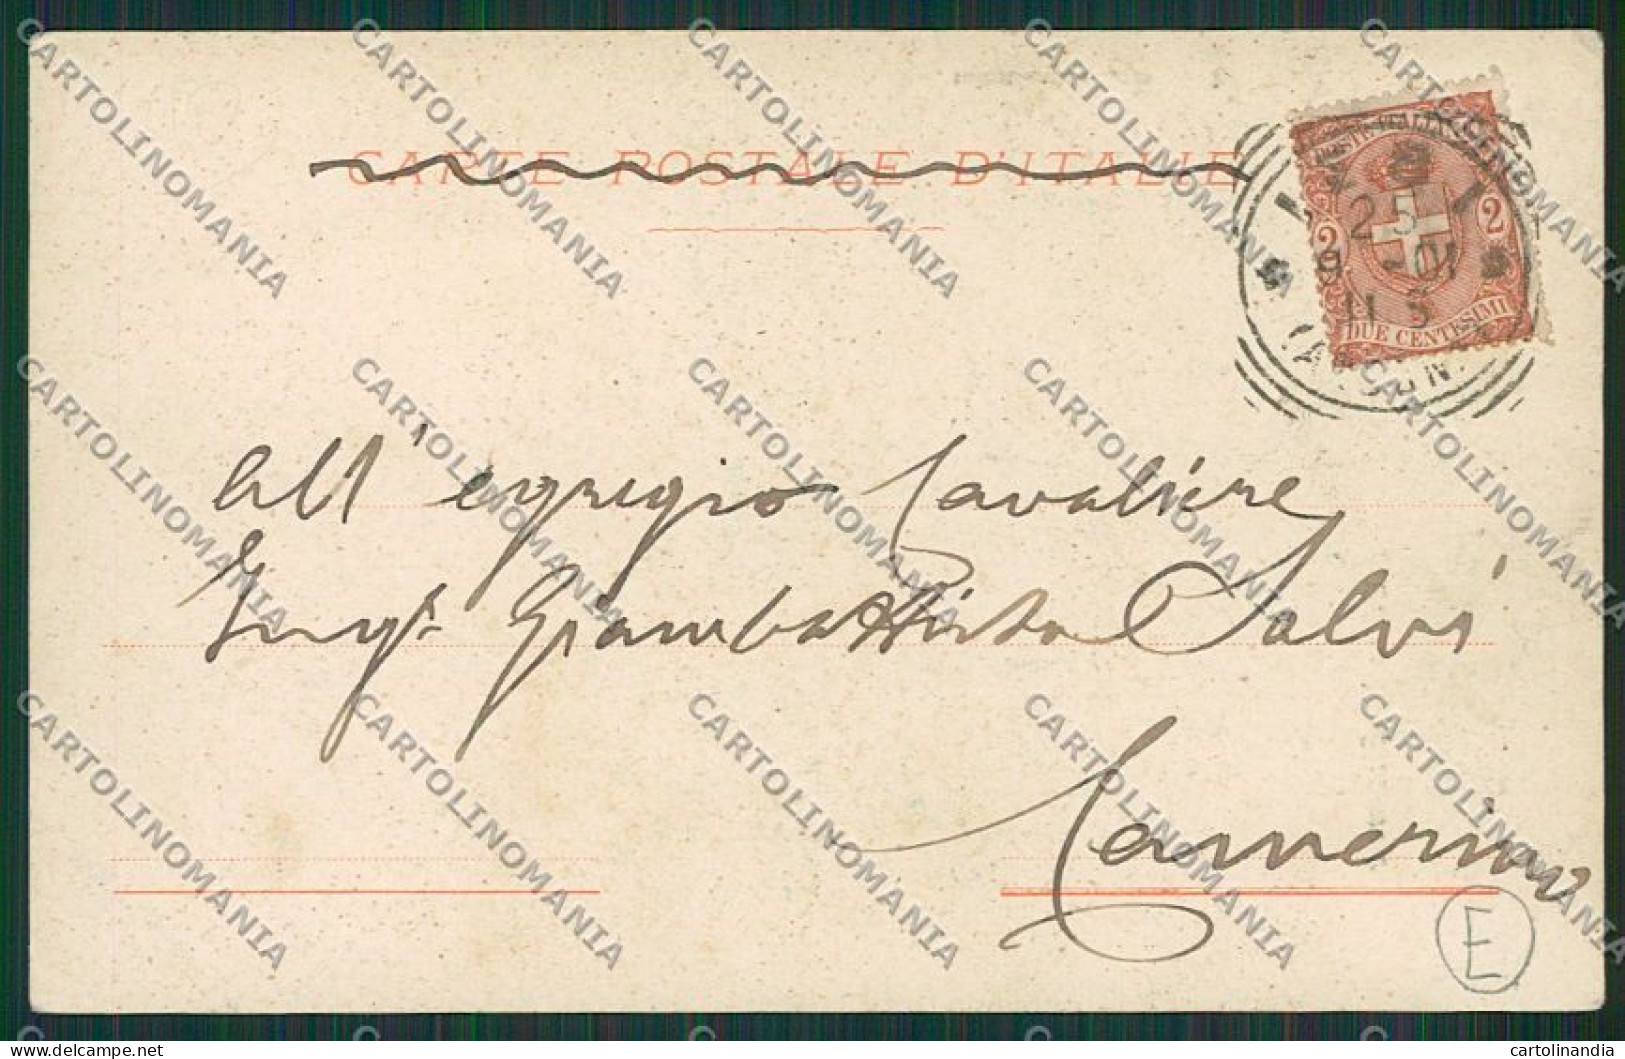 CARTE POSTALE D'ITALIE
POSTE ITALIANE
2 2
DUE CENTESIMI
25
9 - 01
11 S
All'egregio Cavaliere
Ing.r Giambattista Salvi
Camerino
E
CARTOLINOMANIA
delcampe.net
cartolinandia